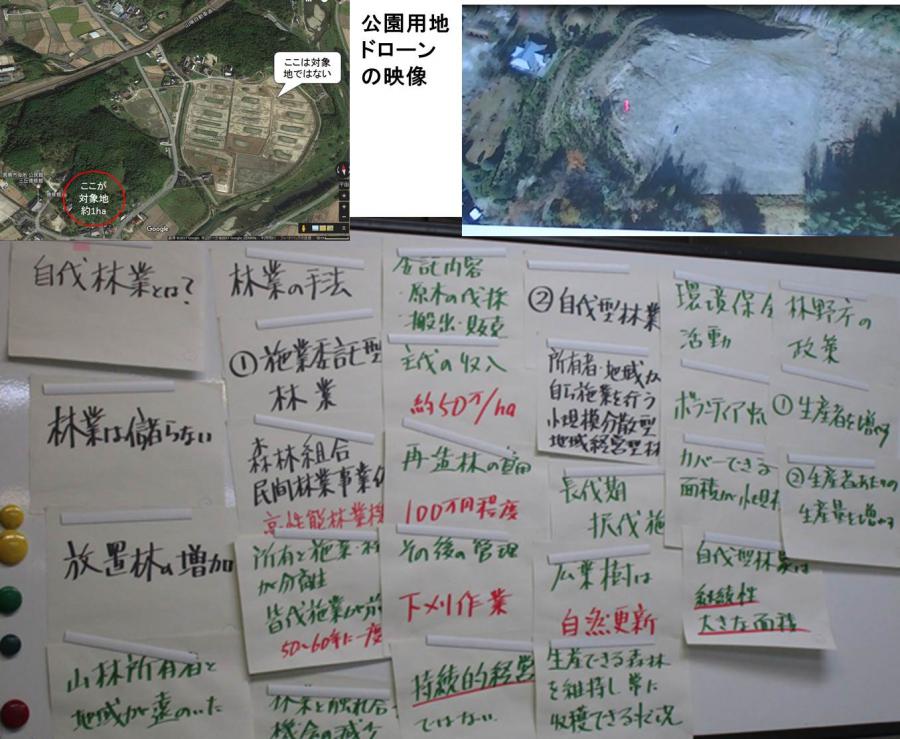 公園用地
ドローン
の映像
ここは対象
地ではない
ここが
対象地
約1ha
Google
自代林業とは?
林業は儲らない
放置林の増加
山林所有者と
地域が遠のいた
林業の手法
①施業委託型
林業
森林組合
民間林業事業体
高性能林業機
所有と施業・
が分離
皆伐施業が前
50~60年に一度
林業と触れ合
機会の減少
委託内容
・原木の伐採
・搬出・販売
主伐の収入
約50万/ha
再造林の費用
100万円程度
その後の管理
下刈り作業
持続的経営
ではない
②自伐型林業
所有者・地域が
自ら施業を行う
小規模分散型
地域経営型林
長伐期
択伐施
広葉樹は
自然更新
生産できる森林
を維持し常に
収穫できる状況
環境保全
活動
ボランティア
カバーできる
面積が小規模
自伐型林業は
継続性
大きな面積
林野庁の
政策
①生産者を増やす
②生産者あたりの
生産量を増やす